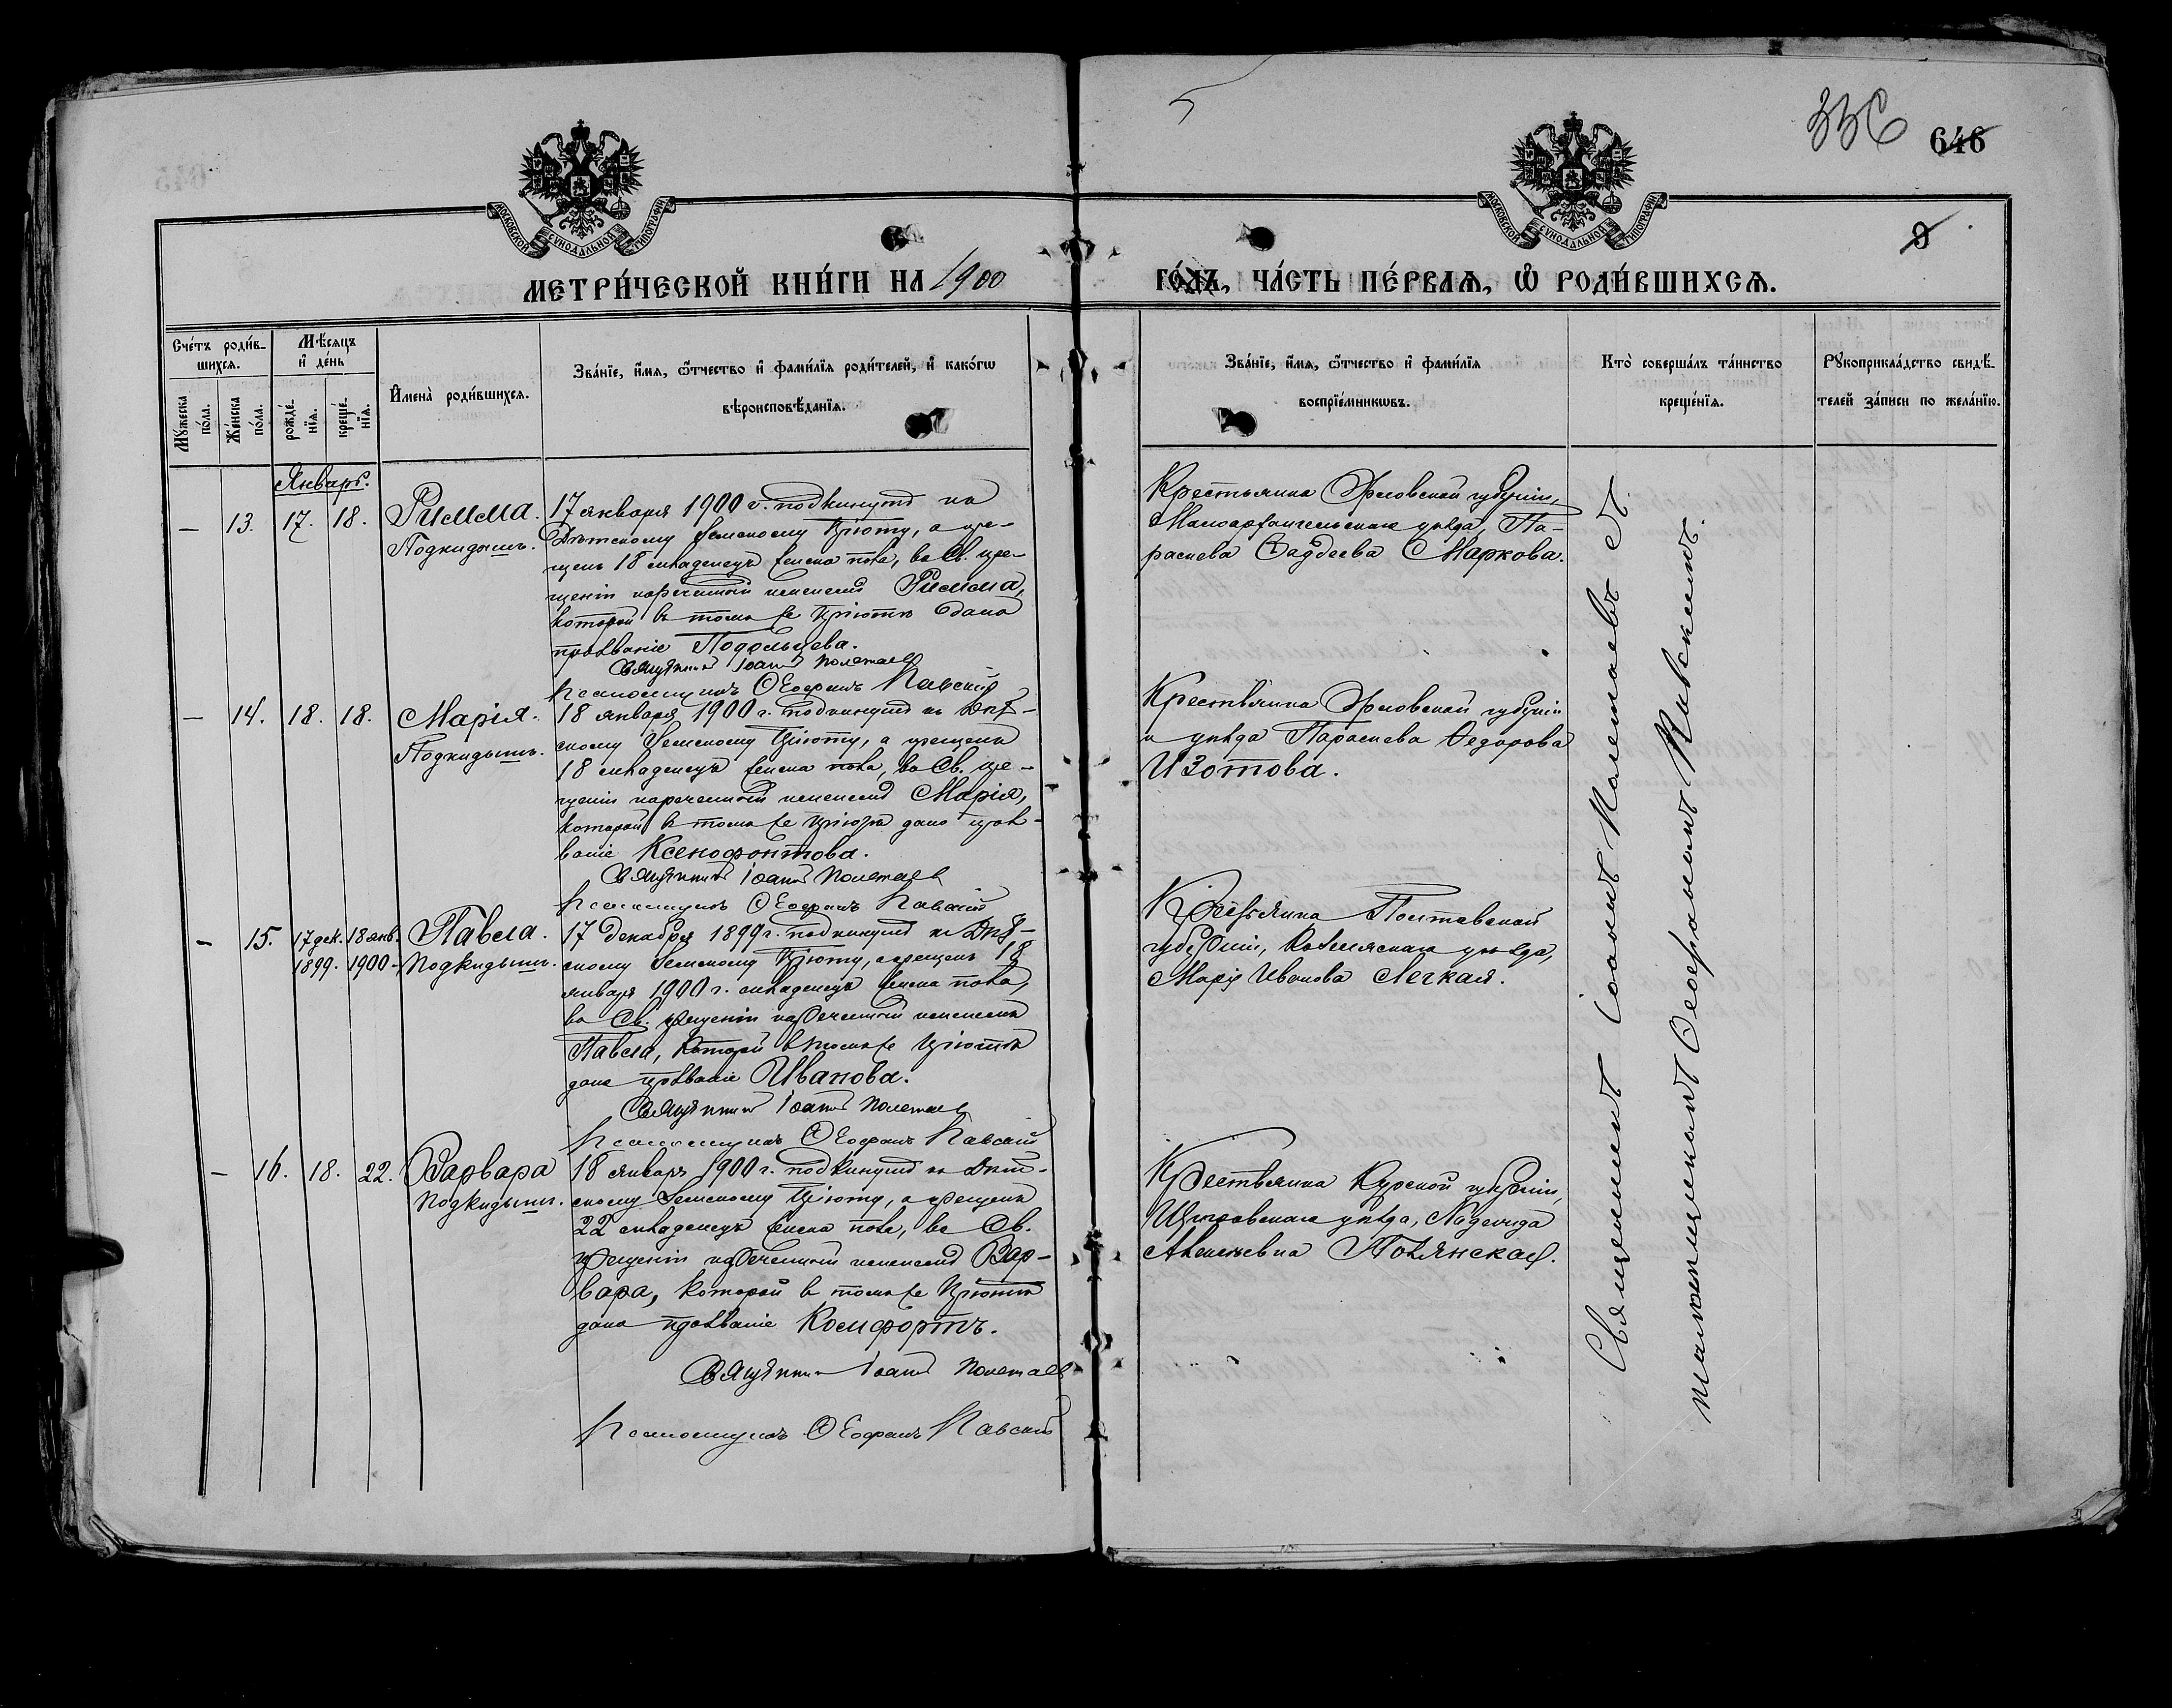 336
646
9
МОСКОВСКОЙ СУНОДАЛЬНОЙ ТИПОГРАФІИ
МОСКОВСКОЙ СУНОДАЛЬНОЙ ТИПОГРАФІИ
МЕТРИ́ЧЕСКОЙ КНИ́ГИ НА 1900 ГО́ДЪ, ЧА́СТЬ ПЕ́РВАѦ, Ѿ РОДИ́ВШИХСѦ.
Сче́тъ роди́в-
шихсѧ.
Мѣ́сѧцъ
и҆ де́нь
Мꙋжеска
по́ла.
Же́нска
по́ла.
рожде́-
нїѧ.
креще́-
нїѧ.
И҆мена̀ роди́вшихсѧ.
Зва́нїе, и҆́мѧ, ѻ҆́тчество и҆ фами́лїѧ роди́телей, и҆ како́гѡ
вѣроисповѣ́данїѧ.
Зва́нїе, и҆́мѧ, ѻ҆́тчество и҆ фами́лїѧ
воспрїе́мникѡвъ.
Кто̀ соверша́лъ та́инство
креще́нїѧ.
Рꙋкоприкла́дство свидѣ́-
телей за́писи по жела́нїю.
Январь.
— 13. 17. 18. Римма.
Подкидышъ.
17 января 1900 г. подкинутъ къ
Дѣтскому Земскому Пріюту, а кре-
щенъ 18 младенецъ женска пола, во Св. кре-
щеніи нареченный именемъ Римма,
которой въ томъ же Пріютѣ дано
прозваніе Подольцева.
Священникъ Іоаннъ Полетаевъ
Псаломщикъ Ѳеофанъ Павскій
Крестьянка Орловской губерніи,
Малоархангельскаго уѣзда, Па-
раскева Фаддеева Маркова.
— 14. 18. 18. Марія.
Подкидышъ.
18 января 1900 г. подкинутъ къ Дѣт-
скому Земскому Пріюту, а крещенъ
18 младенецъ женска пола, во Св. кре-
щеніи нареченный именемъ Марія,
которой въ томъ же Пріютѣ дано проз-
ваніе Ксенофонтова.
Священникъ Іоаннъ Полетаевъ
Псаломщикъ Ѳеофанъ Павскій
Крестьянка Орловской губерніи
и уѣзда Параскева Ѳедорова
Изотова.
— 15. 17 дек. 18 янв. Павла.
1899. 1900 Подкидышъ.
17 декабря 1899 г. подкинутъ къ Дѣт-
скому Земскому Пріюту, а крещенъ 18
января 1900 г. младенецъ женска пола,
во Св. крещеніи нареченный именемъ
Павла, которой въ томъ же Пріютѣ
дано прозваніе Иванова.
Священникъ Іоаннъ Полетаевъ
Псаломщикъ Ѳеофанъ Павскій
Крестьянка Полтавской
губерніи, уѣзда,
Марія Иванова Легкая.
— 16. 18. 22. Варвара
Подкидышъ.
18 января 1900 г. подкинутъ къ Дѣт-
скому Земскому Пріюту, а крещенъ
22 младенецъ женска пола, во Св.
крещеніи нареченный именемъ Вар-
вара, которой въ томъ же Пріютѣ
дано прозваніе Комфортъ.
Священникъ Іоаннъ Полетаевъ
Псаломщикъ Ѳеофанъ Павскій
Крестьянка Курской губерніи,
Щигровскаго уѣзда, Надежда
Алексѣевна Полянская.
Священникъ Іоаннъ Полетаевъ съ
псаломщикомъ Ѳеофаномъ Павскимъ.